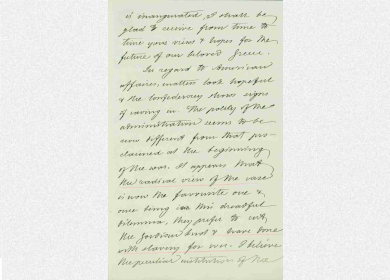 is inaugurated I shall be
glad to receive from time to
time your views & hopes for the
future of our beloved Greece.
In regard to American
affairs, matters look hopeful
& the Confederacy shows signs
of caving in. The policy of the
administration seems to be
now different from that pro-
claimed at the beginning
of the war. It appears that
the radical view of the case
is now the favourite one &
once being in this dreadful
dilemma, they prefer to cut
the Gordian knot & have done
with slavery for ever. I believe
the peculiar institution of the